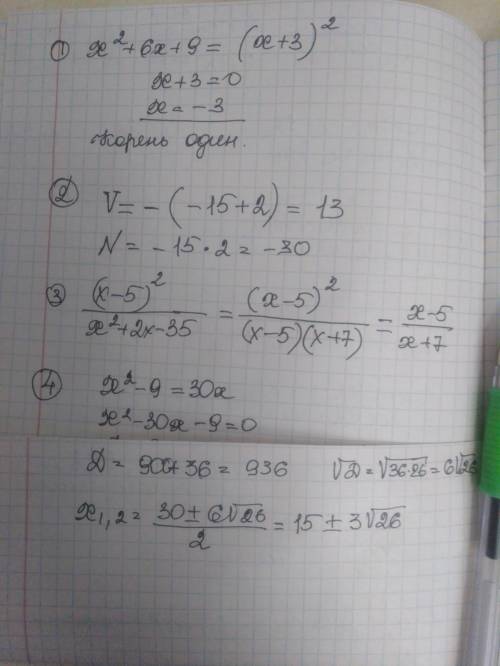 ① x² + 6x + 9 = (x+3)²
x + 3 = 0
x = -3
Корень один.
② V = - (-15+2) = 13
N = -15 · 2 = -30
③ (x-5)² / (x²+2x-35) = (x-5)² / ((x-5)(x+7)) = (x-5) / (x+7)
④ x² - 9 = 30x
x² - 30x - 9 = 0
D = 900 + 36 = 936 √D = √36·26 = 6√26
x₁,₂ = (30 ± 6√26) / 2 = 15 ± 3√26